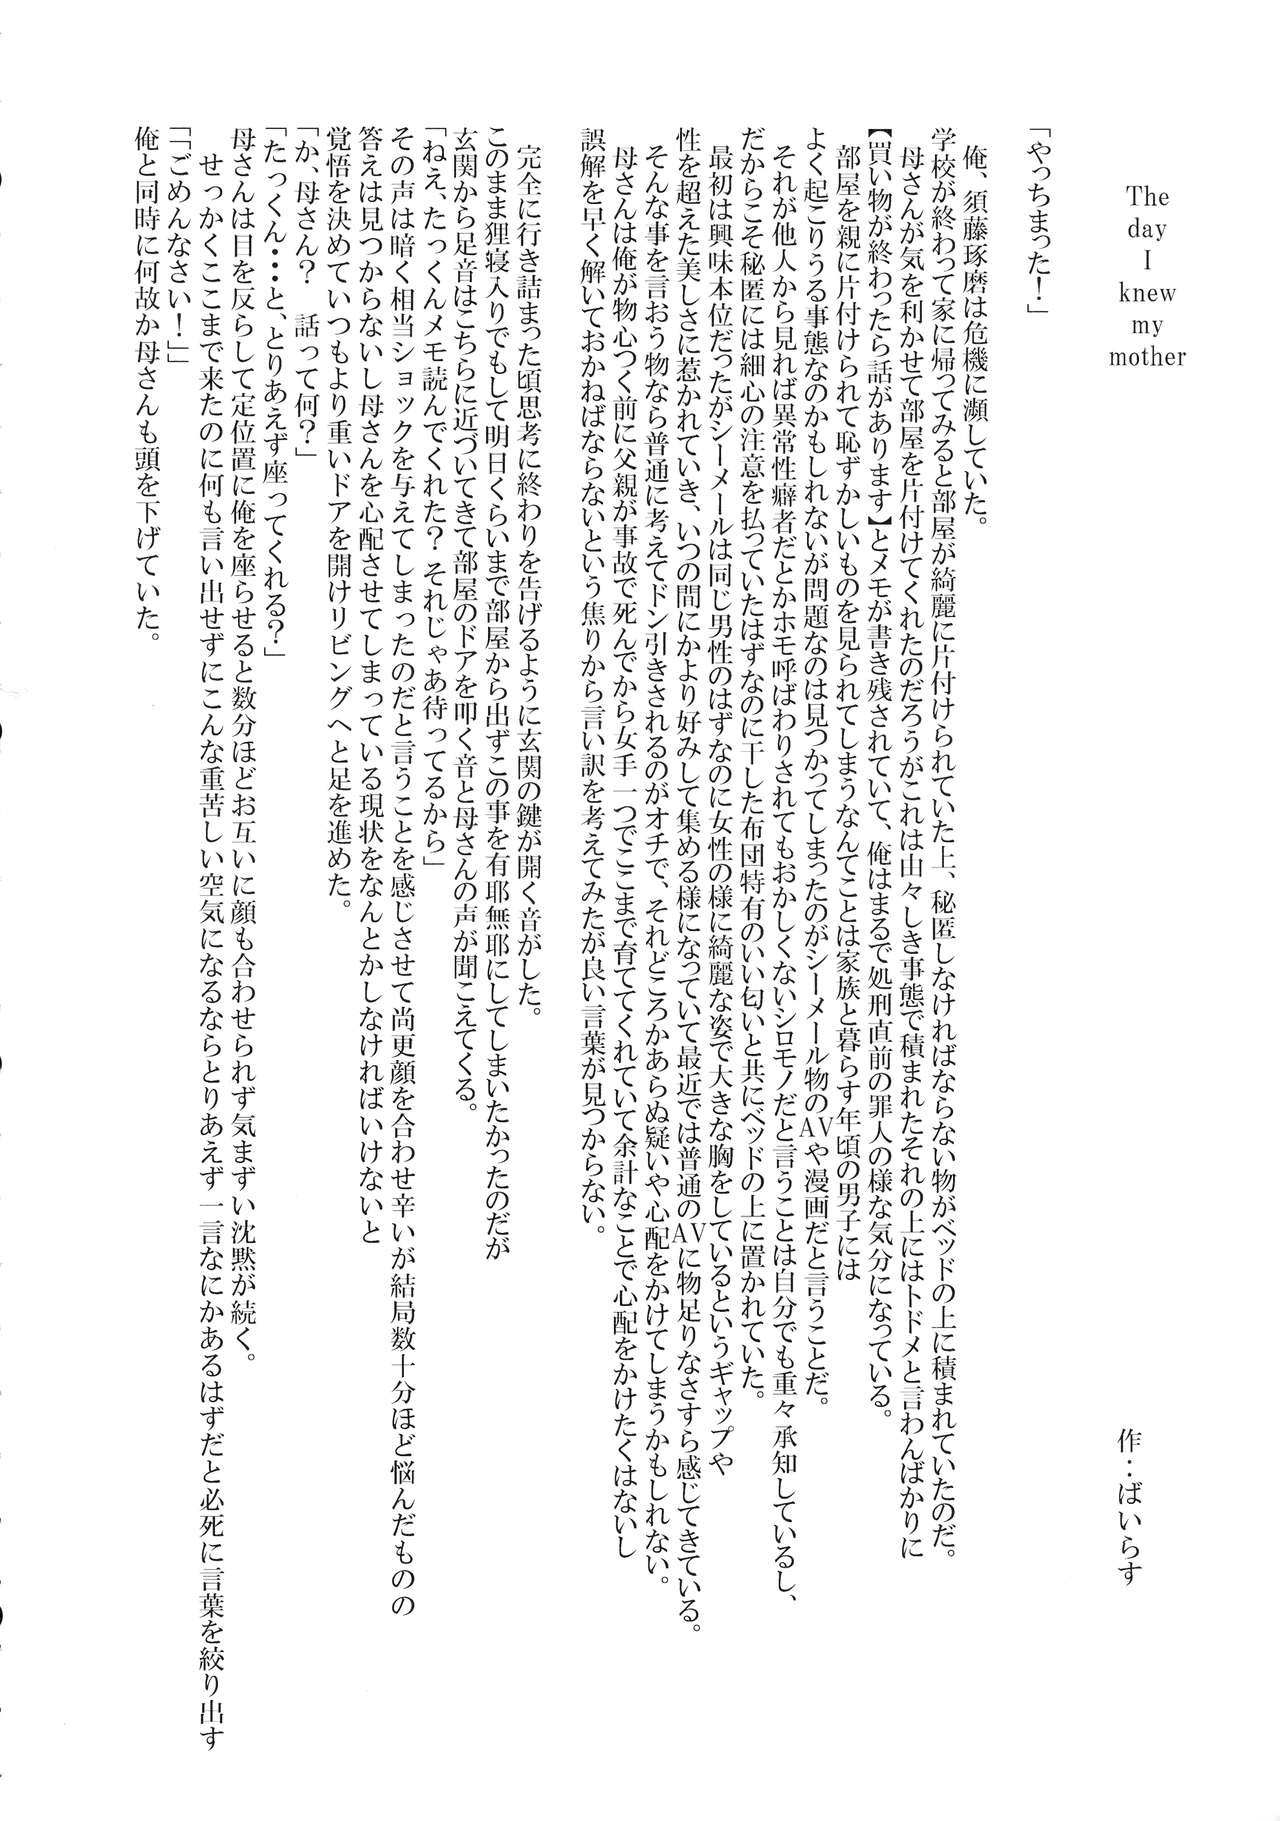 The
day
I
knew
my
mother
作：ばいらす
「やっちまった！」
俺、須藤琢磨は危機に瀕していた。
学校が終わって家に帰ってみると部屋が綺麗に片付けられていた上、秘匿しなければならない物がベッドの上に積まれていたのだ。
母さんが気を利かせて部屋を片付けてくれたのだろうがこれは由々しき事態で積まれたそれの上にはトドメと言わんばかりに
【買い物が終わったら話があります】とメモが書き残されていて、俺はまるで処刑直前の罪人の様な気分になっている。
部屋を親に片付けられて恥ずかしいものを見られてしまうなんてことは家族と暮らす年頃の男子には
よく起こりうる事態なのかもしれないが問題なのは見つかってしまったのがシーメール物のAVや漫画だと言うことだ。
それが他人から見れば異常性癖者だとかホモ呼ばわりされてもおかしくないシロモノだと言うことは自分でも重々承知しているし、
だからこそ秘匿には細心の注意を払っていたはずなのに干した布団特有のいい匂いと共にベッドの上に置かれていた。
最初は興味本位だったがシーメールは同じ男性のはずなのに女性の様に綺麗な姿で大きな胸をしているというギャップや
性を超えた美しさに惹かれていき、いつの間にかより好みして集める様になっていて最近では普通のAVに物足りなさすら感じてきている。
そんな事を言おう物なら普通に考えてドン引きされるのがオチで、それどころかあらぬ疑いや心配をかけてしまうかもしれない。
母さんは俺が物心つく前に父親が事故で死んでから女手一つでここまで育ててくれていて余計なことで心配をかけたくはないし
誤解を早く解いておかねばならないという焦りから言い訳を考えてみたが良い言葉が見つからない。
完全に行き詰まった頃思考に終わりを告げるように玄関の鍵が開く音がした。
このまま狸寝入りでもして明日くらいまで部屋から出ずこの事を有耶無耶にしてしまいたかったのだが
玄関から足音はこちらに近づいてきて部屋のドアを叩く音と母さんの声が聞こえてくる。
「ねえ、たっくんメモ読んでくれた？それじゃあ待ってるから」
その声は暗く相当ショックを与えてしまったのだと言うことを感じさせて尚更顔を合わせ辛いが結局数十分ほど悩んだものの
答えは見つからないし母さんを心配させてしまっている現状をなんとかしなければいけないと
覚悟を決めていつもより重いドアを開けリビングへと足を進めた。
「か、母さん？　話って何？」
「たっくん・・・と、とりあえず座ってくれる？」
母さんは目を反らして定位置に俺を座らせると数分ほどお互いに顔も合わせられず気まずい沈黙が続く。
せっかくここまで来たのに何も言い出せずにこんな重苦しい空気になるならとりあえず一言なにかあるはずだと必死に言葉を絞り出す
「「ごめんなさい！」」
俺と同時に何故か母さんも頭を下げていた。